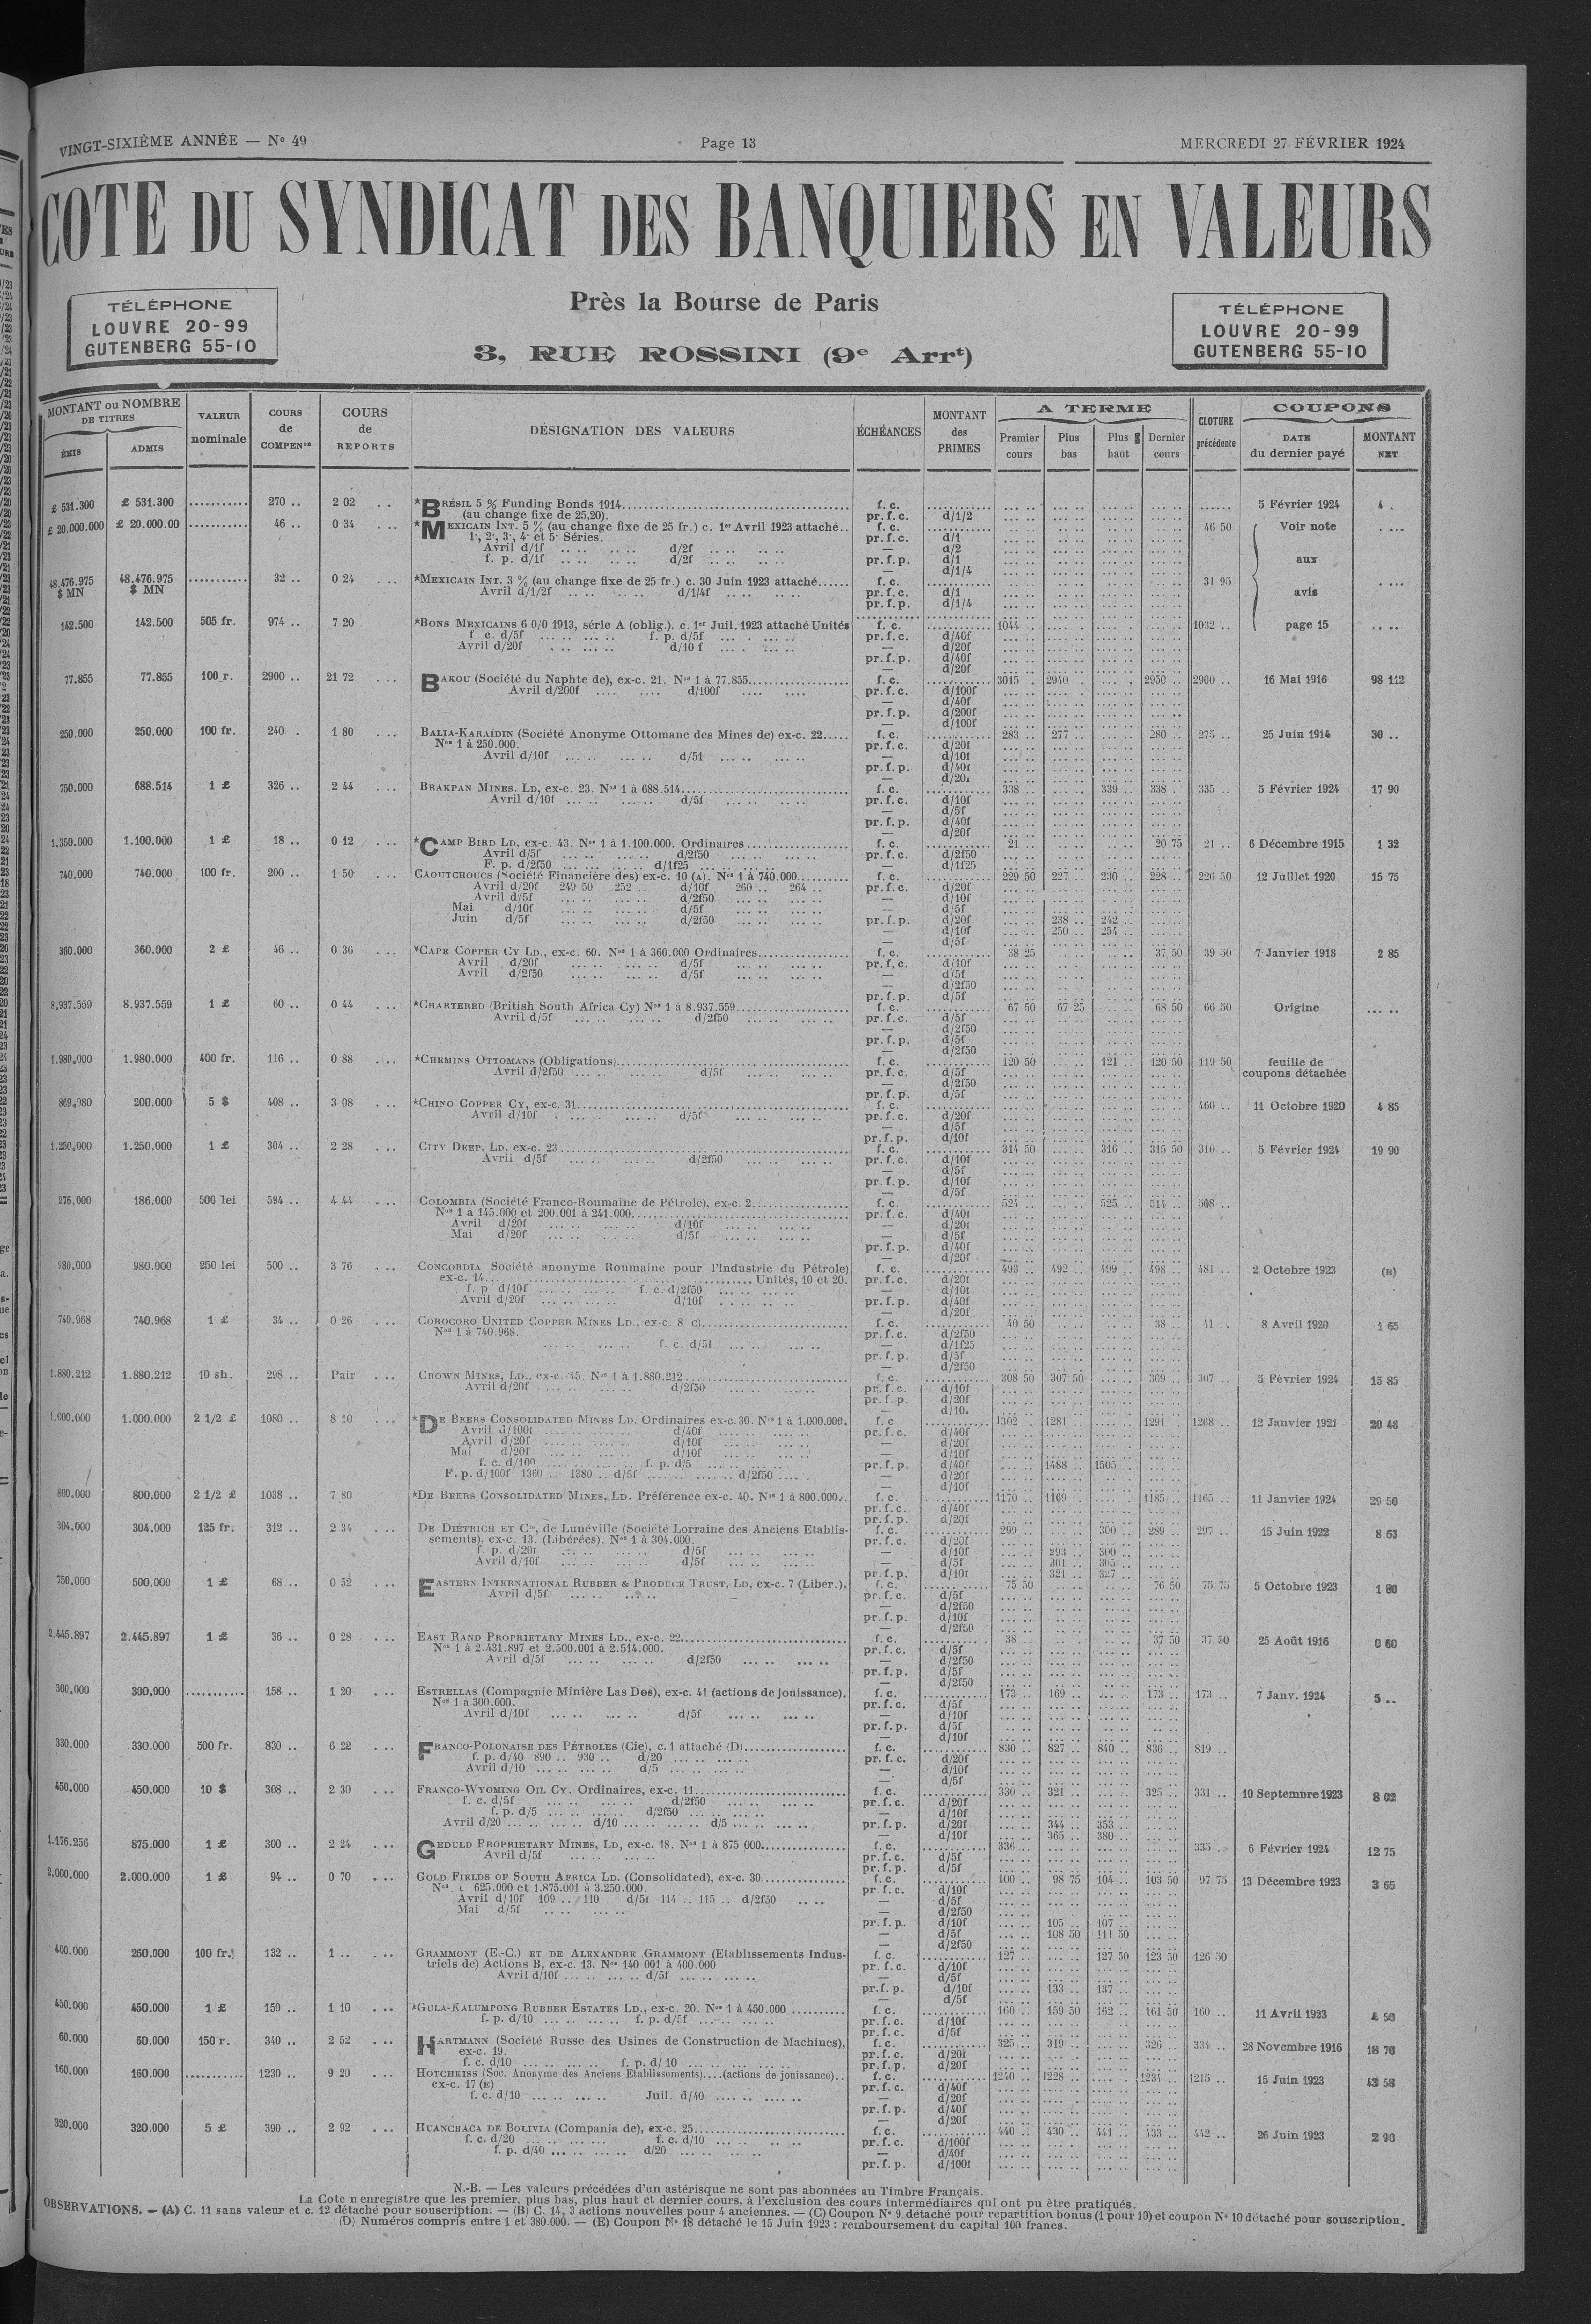 VINGT-SIXIÈME ANNÉE — Nº 49
Page 13
MERCREDI 27 FÉVRIER 1924
COTE DU SYNDICAT DES BANQUIERS EN VALEURS
Près la Bourse de Paris
3, RUE ROSSINI (9e Arrt)
TÉLÉPHONE
LOUVRE 20-99
GUTENBERG 55-10
TÉLÉPHONE
LOUVRE 20-99
GUTENBERG 55-10
MONTANT ou NOMBRE DE TITRES
ÉMIS ADMIS
VALEUR nominale
COURS de COMPENon
COURS de REPORTS
DÉSIGNATION DES VALEURS
ÉCHÉANCES
MONTANT des PRIMES
A TERME
Premier cours Plus bas Plus haut Dernier cours
CLOTURE précédente
COUPONS
DATE du dernier payé
MONTANT NET
£ 531.300 £ 531.300 270 .. 2 02 *BRÉSIL 5 % Funding Bonds 1914 f. c. 5 Février 1924 4 .
(au change fixe de 25,20). pr. f. c. d/1/2
£ 20.000.000 £ 20.000.00 46 .. 0 34 *MEXICAIN INT. 5 % (au change fixe de 25 fr.) c. 1er Avril 1923 attaché.. f. c. 46 50 Voir note
1e, 2e, 3e, 4e et 5e Séries. pr. f. c. d/1
Avril d/1f d/2f — d/2
f. p. d/1f d/2f pr. f. p. d/1
— d/1/4
aux
48.476.975 $ MN 48.476.975 $ MN 32 .. 0 24 *MEXICAIN INT. 3 % (au change fixe de 25 fr.) c. 30 Juin 1923 attaché f. c. 31 95
Avril d/1/2f d/1/4f pr. f. c. d/1 avis
pr. f. p. d/1/4
142.500 142.500 505 fr. 974 .. 7 20 *BONS MEXICAINS 6 0/0 1913, série A (oblig.). c. 1er Juil. 1923 attaché Unités f. c. 1044 1032 .. page 15
f c. d/5f f. p. d/5f pr. f. c. d/40f
Avril d/20f d/10 f — d/20f
pr. f. p. d/40f
— d/20f
77.855 77.855 100 r. 2900 .. 21 72 BAKOU (Société du Naphte de), ex-c. 21. Nos 1 à 77.855 f. c. 3015 2940 2950 .. 2900 .. 16 Mai 1916 98 112
Avril d/200f d/100f pr. f. c. d/100f
— d/40f
pr. f. p. d/200f
— d/100f
250.000 250.000 100 fr. 240 . 1 80 BALIA-KARAÏDIN (Société Anonyme Ottomane des Mines de) ex-c. 22 f. c. 283 .. 277 .. 280 .. 275 .. 25 Juin 1914 30 ..
Nos 1 à 250.000. pr. f. c. d/20f
Avril d/10f d/5f — d/10f
pr. f. p. d/40f
— d/20f
750.000 688.514 1 £ 326 .. 2 44 BRAKPAN MINES. LD, ex-c. 23. Nos 1 à 688.514 f. c. 338 .. 339 .. 338 . 335 .. 5 Février 1924 17 90
Avril d/10f d/5f pr. f. c. d/10f
— d/5f
pr. f. p. d/40f
— d/20f
1.350.000 1.100.000 1 £ 18 .. 0 12 *CAMP BIRD LD, ex-c. 43. Nos 1 à 1.100.000. Ordinaires f. c. 21 .. 20 75 21 .. 6 Décembre 1915 1 32
Avril d/5f d/2f50 pr. f. c. d/2f50
F. p. d/2f50 d/1f25 — d/1f25
740.000 740.000 100 fr. 200 .. 1 50 CAOUTCHOUCS (Société Financière des) ex-c. 10 (A). Nos 1 à 740.000 f. c. 229 50 227 .. 230 .. 228 .. 226 50 12 Juillet 1920 15 75
Avril d/20f 249 50 252 .. d/10f 260 .. 264 .. pr. f. c. d/20f
Avril d/5f d/2f50 — d/10f
Mai d/10f d/5f — d/5f
Juin d/5f d/2f50 pr. f. p. d/20f 238 .. 242 ..
— d/10f 250 .. 254 ..
— d/5f
360.000 360.000 2 £ 46 .. 0 36 *CAPE COPPER CY LD., ex-c. 60. Nos 1 à 360.000 Ordinaires f. c. 38 25 37 50 39 50 7 Janvier 1918 2 85
Avril d/20f d/5f pr. f. c. d/10f
Avril d/2f50 d/5f — d/5f
— d/2f50
pr. f. p. d/5f
8.937.559 8.937.559 1 £ 60 .. 0 44 *CHARTERED (British South Africa Cy) Nos 1 à 8.937.559 f. c. 67 50 67 25 68 50 66 50 Origine
Avril d/5f d/2f50 pr. f. c. d/5f
— d/2f50
pr. f. p. d/5f
— d/2f50
1.980.000 1.980.000 400 fr. 116 .. 0 88 *CHEMINS OTTOMANS (Obligations) f. c. 120 50 121 .. 120 50 119 50 feuille de
Avril d/2f50 d/5f pr. f. c. d/5f coupons détachée
— d/2f50
pr. f. p. d/5f
869.980 200.000 5 $ 408 .. 3 08 *CHINO COPPER CY, ex-c. 31 f. c. 460 .. 11 Octobre 1920 4 85
Avril d/10f d/5f pr. f. c. d/20f
— d/5f
pr. f. p. d/10f
1.250.000 1.250.000 1 £ 304 .. 2 28 CITY DEEP, LD, ex-c. 23 f. c. 314 50 316 .. 315 50 310 .. 5 Février 1924 19 90
Avril d/5f d/2f50 pr. f. c. d/10f
— d/5f
pr. f. p. d/10f
— d/5f
276.000 186.000 500 lei 594 .. 4 44 COLOMBIA (Société Franco-Roumaine de Pétrole), ex-c. 2 f. c. 524 .. 525 .. 514 .. 508 ..
Nos 1 à 145.000 et 200.001 à 241.000 pr. f. c. d/40f
Avril d/20f d/10f — d/20f
Mai d/20f d/5f — d/5f
pr. f. p. d/40f
— d/20f
980.000 980.000 250 lei 500 .. 3 76 CONCORDIA Société anonyme Roumaine pour l'Industrie du Pétrole) f. c. 493 .. 492 .. 499 .. 498 .. 481 .. 2 Octobre 1923 (B)
ex-c. 14 Unités, 10 et 20. pr. f. c. d/20f
f. p d/10f f. c. d/2f50 — d/10f
Avril d/20f d/10f pr. f. p. d/40f
— d/20f
740.968 740.968 1 £ 34 .. 0 26 COROCORO UNITED COPPER MINES LD., ex-c. 8 c) f. c. 40 50 38 .. 41 .. 8 Avril 1920 1 65
Nos 1 à 740.968. pr. f. c. d/2f50
f. c. d/5f — d/1f25
pr. f. p. d/5f
— d/2f50
1.880.212 1.880.212 10 sh. 298 .. Pair CROWN MINES, LD., ex-c. 45. Nos 1 à 1.880.212 f. c. 308 50 307 50 309 .. 307 .. 5 Février 1924 15 85
Avril d/20f d/2f50 pr. f. c. d/10f
pr. f. p. d/20f
— d/10.
1.000.000 1.000.000 2 1/2 £ 1080 .. 8 10 *DE BEERS CONSOLIDATED MINES LD. Ordinaires ex-c. 30. Nos 1 à 1.000.000. f. c 1302 . 1281 .. 1291 1268 .. 12 Janvier 1921 20 48
Avril d/100f d/40f pr. f. c. d/40f
Avril d/20f d/10f — d/20f
Mai d/20f d/10f — d/10f
f. c. d/100 f. p. d/5 pr. f. p. d/40f 1488 .. 1505 ..
F. p. d/100f 1360 .. 1380 .. d/5f d/2f50 — d/20f
— d/10f
800.000 800.000 2 1/2 £ 1038 .. 7 80 *DE BEERS CONSOLIDATED MINES, LD. Préférence ex-c. 40. Nos 1 à 800.000.. f. c. 1170 .. 1169 .. 1185 .. 1165 .. 11 Janvier 1924 29 50
pr. f. c. d/40f
pr. f. p. d/20f
304.000 304.000 125 fr. 312 .. 2 34 DE DIÉTRICH ET Cie, de Lunéville (Société Lorraine des Anciens Etablis- f. c. 299 .. 300 .. 289 .. 297 .. 15 Juin 1922 8 63
sements), ex-c. 13. (Libérées). Nos 1 à 304.000. pr. f. c. d/20f
f. p. d/20f d/5f — d/10f 293 .. 300 ..
Avril d/10f d/5f — d/5f 301 .. 305 ..
pr. f. p. d/10f 321 .. 327 ..
750.000 500.000 1 £ 68 .. 0 52 EASTERN INTERNATIONAL RUBBER & PRODUCE TRUST, LD, ex-c. 7 (Libér.). f. c. 75 50 76 50 75 75 5 Octobre 1923 1 80
Avril d/5f pr. f. c. d/5f
— d/2f50
pr. f. p. d/10f
— d/2f50
2.445.897 2.445.897 1 £ 36 .. 0 28 EAST RAND PROPRIETARY MINES LD., ex-c. 22 f. c. 38 .. 37 50 37 50 25 Août 1916 0 60
Nos 1 à 2.431.897 et 2.500.001 à 2.514.000. pr. f. c. d/5f
Avril d/5f d/2f50 — d/2f50
pr. f. p. d/5f
— d/2f50
300.000 300.000 158 .. 1 20 ESTRELLAS (Compagnie Minière Las Dos), ex-c. 41 (actions de jouissance). f. c. 173 .. 169 .. 173 .. 173 .. 7 Janv. 1924 5 ..
Nos 1 à 300.000. pr. f. c. d/5f
Avril d/10f d/5f — d/10f
pr. f. p. d/5f
— d/10f
330.000 330.000 500 fr. 830 .. 6 22 FRANCO-POLONAISE DES PÉTROLES (Cie), c. 1 attaché (D) f. c. 830 .. 827 .. 840 .. 836 .. 819 ..
f. p. d/40 890 .. 930 .. d/20 pr. f. c. d/20f
Avril d/10 d/5 — d/10f
— d/5f
450.000 450.000 10 $ 308 .. 2 30 FRANCO-WYOMING OIL CY. Ordinaires, ex-c. 11 f. c. 330 .. 321 .. 325 .. 331 .. 10 Septembre 1923 8 02
f. c. d/5f d/2f50 pr. f. c. d/20f
f. p. d/5 d/2f50 — d/10f
Avril d/20 d/10 d/5 pr. f. p. d/20f 344 .. 353 ..
— d/10f 365 .. 380 ..
1.176.256 875.000 1 £ 300 .. 2 24 GEDULD PROPRIETARY MINES, LD, ex-c. 18. Nos 1 à 875 000 f. c. 336 335 .. 6 Février 1924 12 75
Avril d/5f pr. f. c. d/5f
pr. f. p. d/5f
2.000.000 2.000.000 1 £ 94 .. 0 70 GOLD FIELDS OF SOUTH AFRICA LD. (Consolidated), ex-c. 30 f. c. 100 .. 98 75 104 .. 103 50 97 75 13 Décembre 1923 3 65
Nos. 1 625.000 et 1.875.001 à 3.250.000. pr. f. c. d/10f
Avril d/10f 109 .. 110 d/5f 114 .. 115 .. d/2f50 — d/5f
Mai d/5f — d/2f50
pr. f. p. d/10f 105 .. 107 ..
— d/5f 108 50 111 50
— d/2f50
400.000 260.000 100 fr. 132 .. 1 .. GRAMMONT (E.-C.) ET DE ALEXANDRE GRAMMONT (Etablissements Indus- f. c. 127 .. 127 50 123 50 126 50
triels de) Actions B, ex-c. 13. Nos 140 001 à 400.000 pr. f. c. d/10f
Avril d/10f d/5f — d/5f
pr. f. p. d/10f 133 .. 137 ..
— d/5f
450.000 450.000 1 £ 150 .. 1 10 *GULA-KALUMPONG RUBBER ESTATES LD., ex-c. 20. Nos 1 à 450.000 f. c. 160 .. 159 50 162 .. 161 50 160 .. 11 Avril 1923 4 50
f. p. d/10 f. p. d/5f pr. f. c. d/10f
pr. f. c. d/5f
60.000 60.000 150 r. 340 .. 2 52 HARTMANN (Société Russe des Usines de Construction de Machines), f. c. 325 .. 319 .. 326 .. 334 .. 28 Novembre 1916 18 70
ex-c. 19. pr. f. c. d/20f
f. c. d/10 f. p. d/ 10 pr. f. p. d/20f
160.000 160.000 1230 .. 9 20 HOTCHKISS (Soc. Anonyme des Anciens Etablissements)....(actions de jouissance).. f. c. 1240 .. 1228 .. 1234 .. 1215 .. 15 Juin 1923 43 58
ex-c. 17 (E) pr. f. c. d/40f
f. c. d/10 Juil. d/40 — d/20f
pr. f. p. d/40f
— d/20f
320.000 320.000 5 £ 390 .. 2 92 HUANCHACA DE BOLIVIA (Compania de), ex-c. 25 f. c. 440 .. 430 .. 441 .. 433 .. 442 .. 26 Juin 1923 2 90
f. c. d/20 f. c. d/10 pr. f. c. d/100f
f. p. d/40 d/20 — d/40f
pr. f. p. d/100f
N.-B. — Les valeurs précédées d'un astérisque ne sont pas abonnées au Timbre Français.
La Cote n enregistre que les premier, plus bas, plus haut et dernier cours, à l'exclusion des cours intermédiaires qui ont pu être pratiqués.
OBSERVATIONS. — (A) C. 11 sans valeur et c. 12 détaché pour souscription. — (B) C. 14, 3 actions nouvelles pour 4 anciennes. — (C) Coupon Nº 9 détaché pour repartition bonus (1 pour 10) et coupon Nº 10 détaché pour souscription.
(D) Numéros compris entre 1 et 380.000. — (E) Coupon Nº 18 détaché le 15 Juin 1923 : remboursement du capital 100 francs.